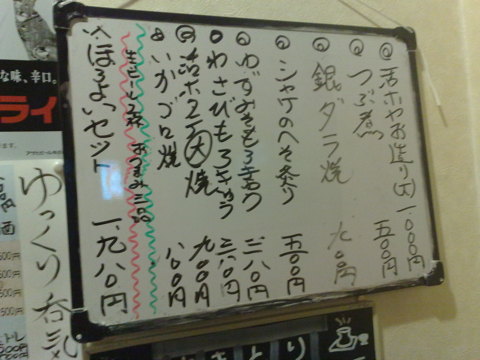 活ホヤお造り(大) 一、〇〇〇円
つぶ煮 五〇〇円
銀ダラ焼 九〇〇円
シャケのへそ炙り 五〇〇円
ゆずみそもろきゅう 三八〇円
わさびもろきゅう 三八〇円
活ホタテ(大)焼 九〇〇円
いかゴロ焼 八〇〇円
生ビール2杯 おつまみ三品
ほろよいセット 一、九八〇円
な味、辛口。
ライ
ゆっくり呑気